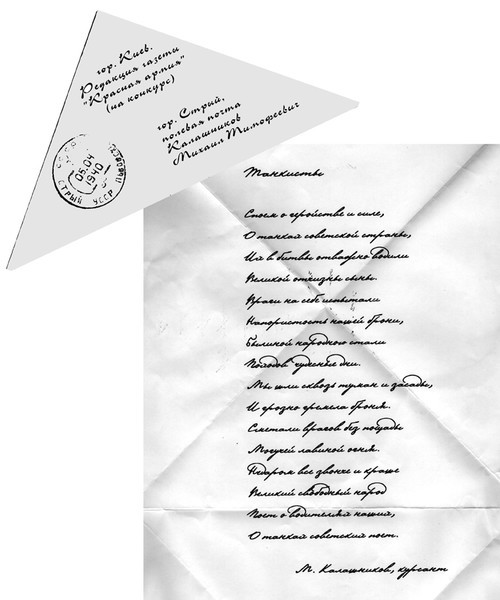 гор. Киев.
Редакция газеты
"Красная армия"
(на конкурс)
гор. Стрый.
полевая почта
Калашников
Михаил Тимофеевич
СССР
05.04
1940
СТРЫЙ УССР
Танкисты
Споем о геройстве и силе,
О танках советской страны,
Их в битвы отважно водили
Великой отчизны сыны.
Враги на себе испытали
Напористость нашей брони,
Былиной народного стали
Походов чудесные дни.
Мы шли сквозь туман и засады,
И грозно гремела броня.
Сметали врагов без пощады
Могучей лавиной огня.
Недаром все звонче и краше
Великий свободный народ
Поет о водителях наших,
О танках советских поет.
М. Калашников, курсант